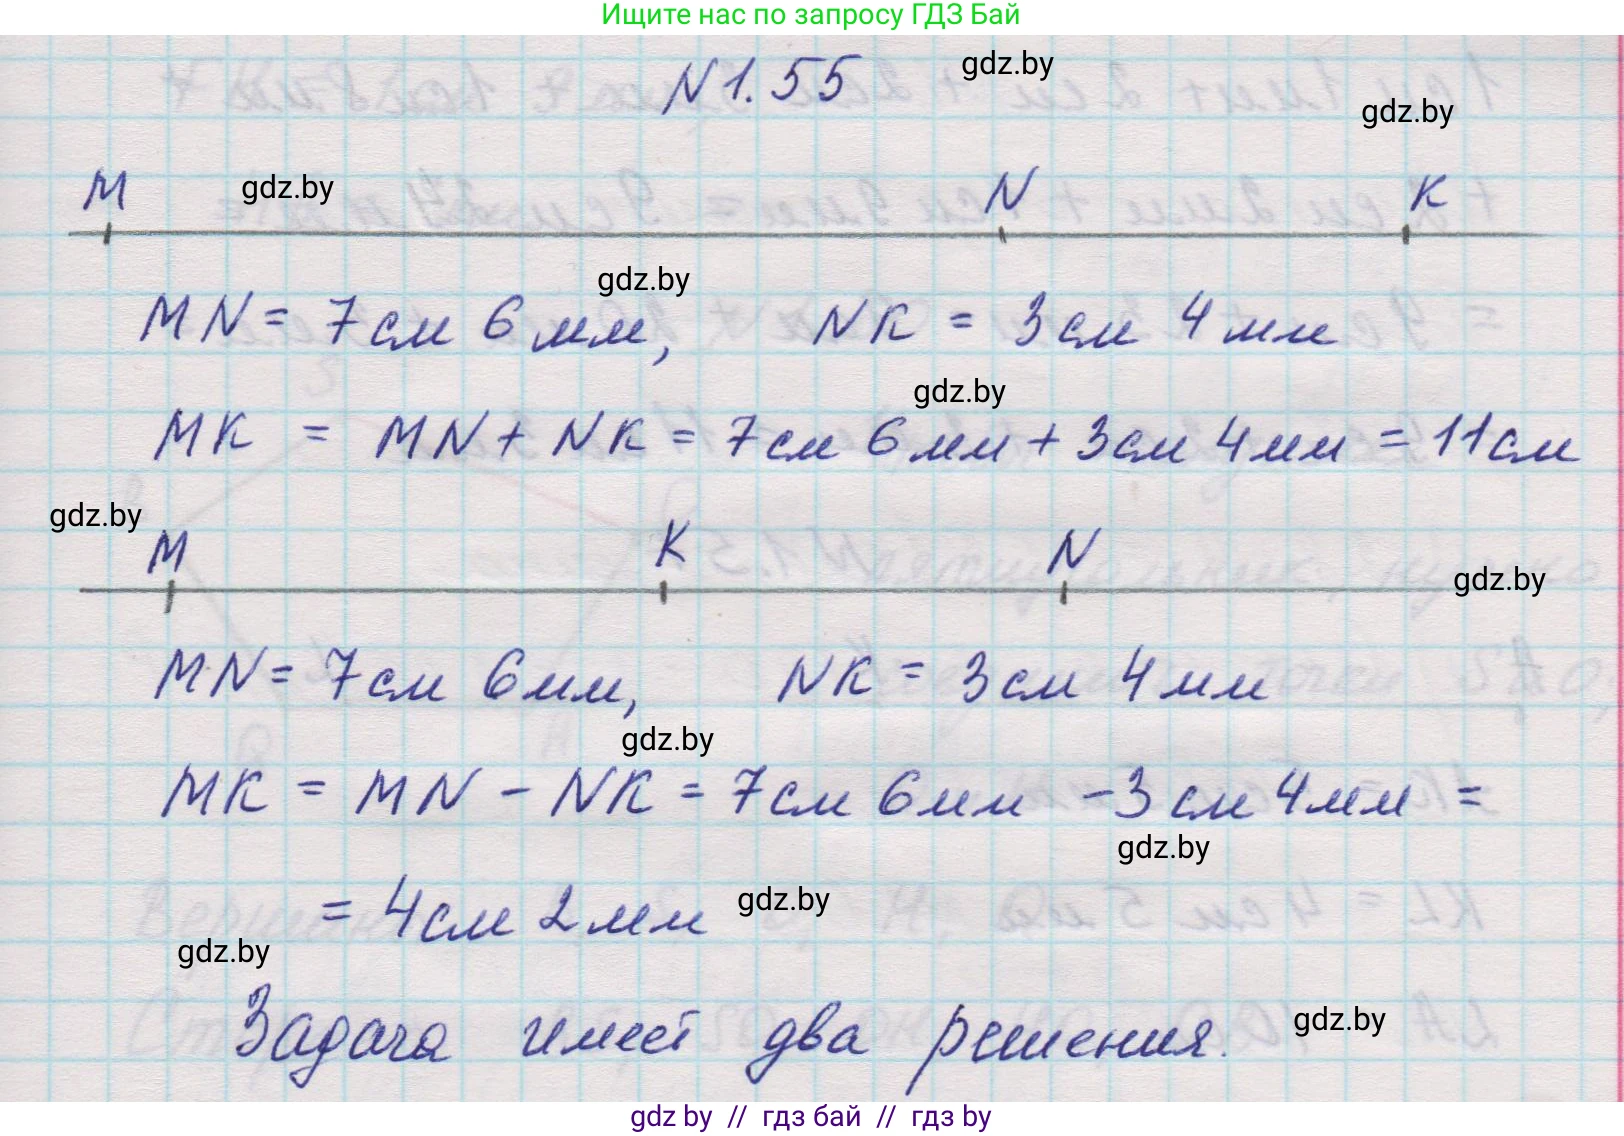 Ищите нас по запросу ГДЗ Бай
N 1.55 gdz.by
gdz.by
M gdz.by N K
gdz.by
MN = 7 см 6 мм, NK = 3 см 4 мм
gdz.by
MK = MN + NK = 7 см 6 мм + 3 см 4 мм = 11 см
gdz.by
M K N
gdz.by
MN = 7 см 6 мм, NK = 3 см 4 мм
gdz.by
MK = MN - NK = 7 см 6 мм - 3 см 4 мм =
gdz.by
= 4 см 2 мм gdz.by
gdz.by
Задача имеет два решения. gdz.by
gdz by // гдз бай // гдз by